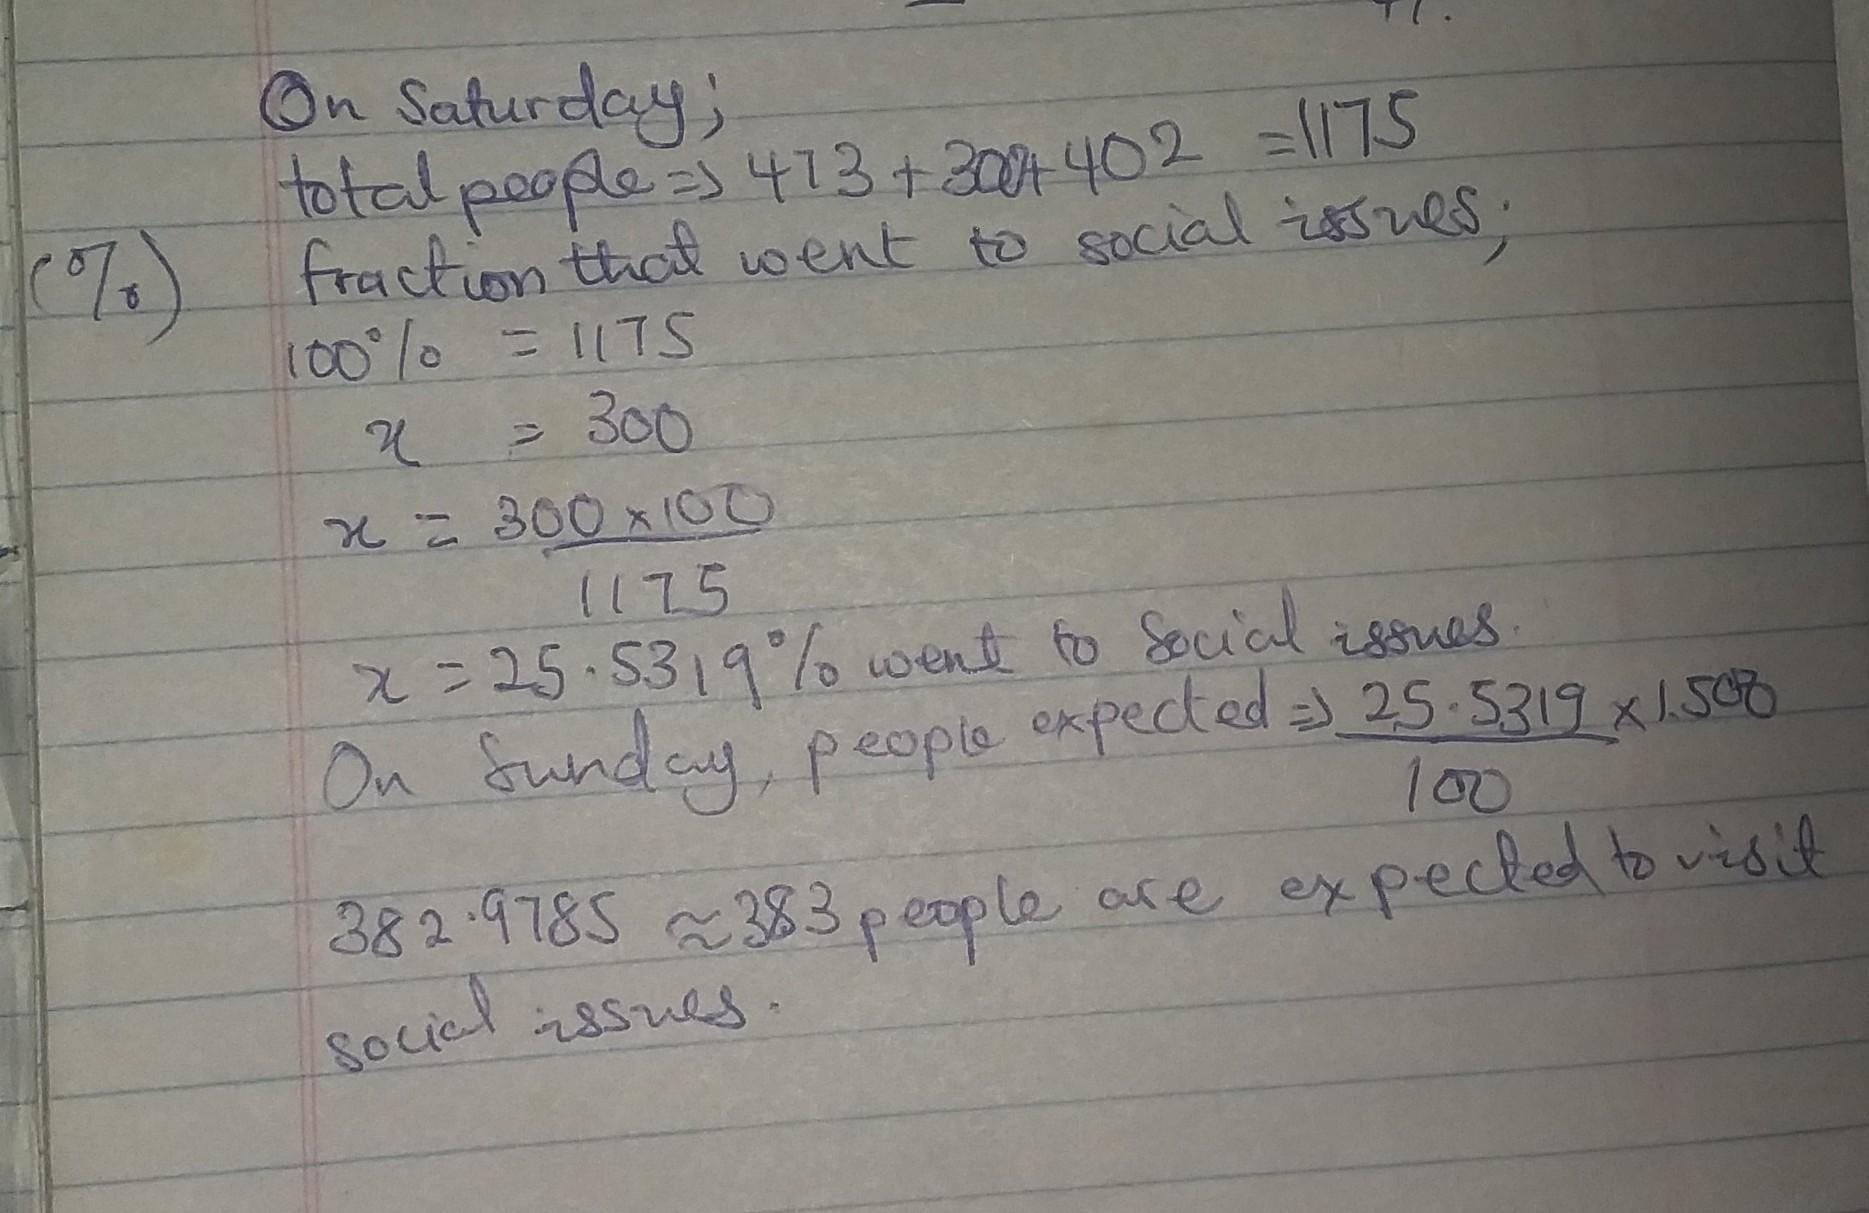 On Saturday;
total people => 473 + 300 + 402 = 1175
(%) fraction that went to social issues;
100% = 1175
x = 300
x = 300 x 100
1175
x = 25.5319% went to Social issues.
On Sunday, people expected => 25.5319 x 1500
100
382.9785 ≈ 383 people are expected to visit
social issues.